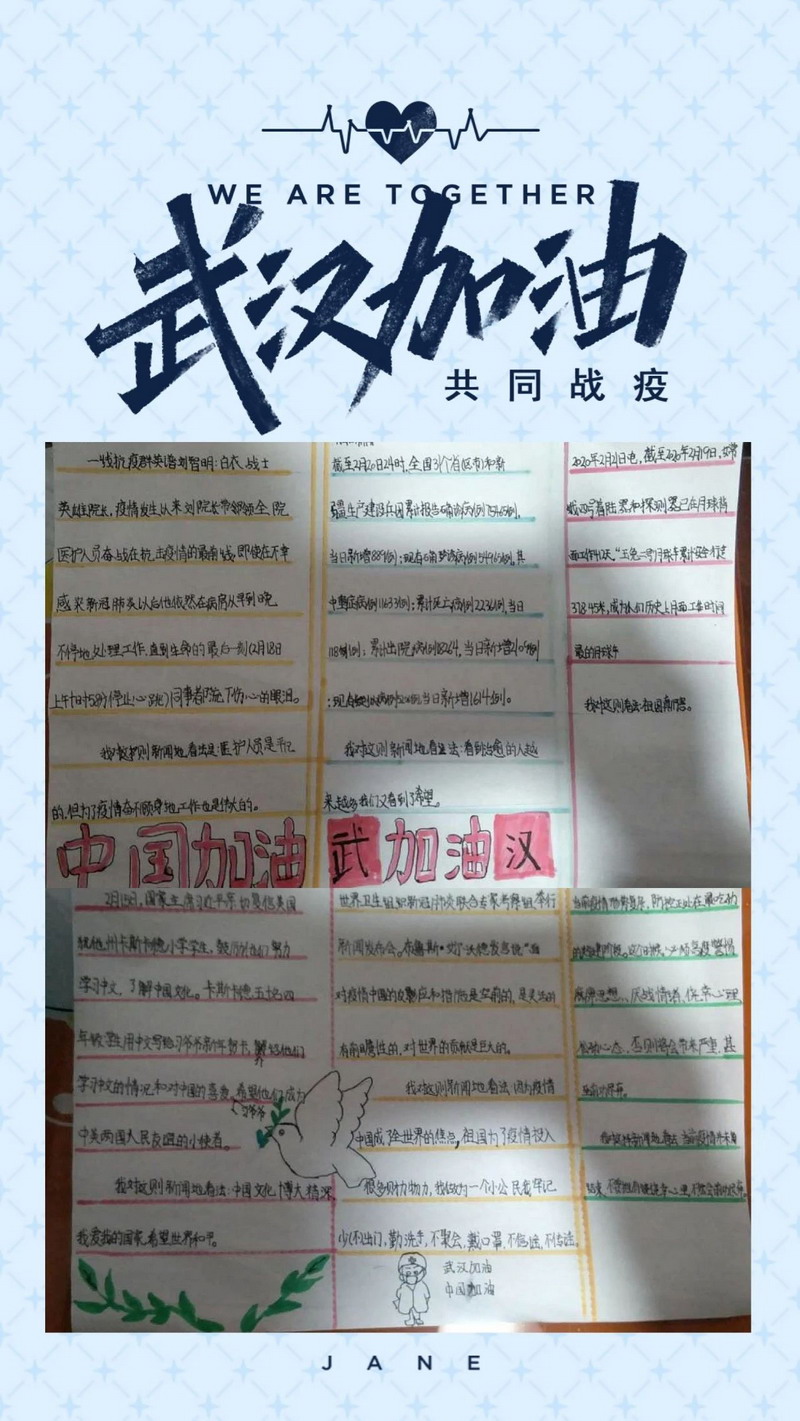 WE ARE TOGETHER
武汉加油
共同战疫
一线抗疫群英谱刘智明:白衣战士
英雄院长,疫情发生以来刘院长带领领全院
医护人员奋战在抗击疫情的最前线,即使在不幸
感染新冠肺炎以后他依然在病房从早到晚
不停地处理工作,直到生命的最后一刻(2月18日
上午10时54分停止心跳)同事者
下伤心的眼泪。
我对这则新闻地看法是:医护人员是平凡
的,但为了疫情奋不顾身地工作也是伟大的。
中国加油
截至2月20日24时,全国31个省(区市)和新
疆生产建设兵团累计报告确诊病例75465例,
当日新增889例;现存确诊病例54965例,其
中重症病例11633例;累计死亡病例2236例,当日
118例;累计出院病例18264,当日新增2109例
;现有疑似病例
当日新增1614例。
我对这则新闻地看法:看到治愈的人越
来越多我们又看到了希望。
武加油汉
2020年2月21日电,截至2020年2月19日,嫦
娥四号着陆器和探测器已在月球背
面工作
天,“玉兔二号”月球车累计安全行走
成为人们历史上月面工作时间
最的月球车
我对这则看法:祖国
2月15日,国家主席习近平
复信美国
犹他州卡斯卡德小学学生,鼓励他们努力
学习中文,了解中国文化。卡斯卡德五十名四
年级学生用中文写给习爷爷新年贺卡,
他们
学习中文的情况和对中国的喜爱,希望他们成为
习爷爷
中美两国人民友谊的小使者。
我对这则新闻地看法:中国文化博大精深
我爱我的国家,希望世界和平。
世界卫生组织新冠肺炎联合专家考察组举行
新闻发布会。布鲁斯·
沃德发言说“面
对疫情中国的反应和措施是空前的,是灵活的
有前瞻性的,对世界的贡献是巨大的。
我对这则新闻地看法:因为疫情
中国成了全世界的焦点,祖国为了疫情投入
很多财力物力,我做为一个小公民我牢记
少(不)出门,勤洗手,不聚会,戴口罩,不信谣,不传谣。
武汉加油
中国加油
当前疫情
防控正处在最吃劲
的关键阶段。
麻痹思想、厌战情绪、侥幸心理、
松劲心态,否则将会带来严重,甚
至
JANE